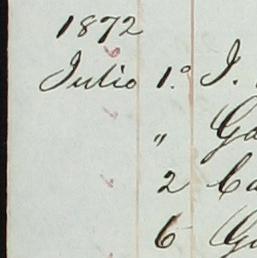 1872
Julio 1.º J.
„ Ga
2 Ca
6 Ga